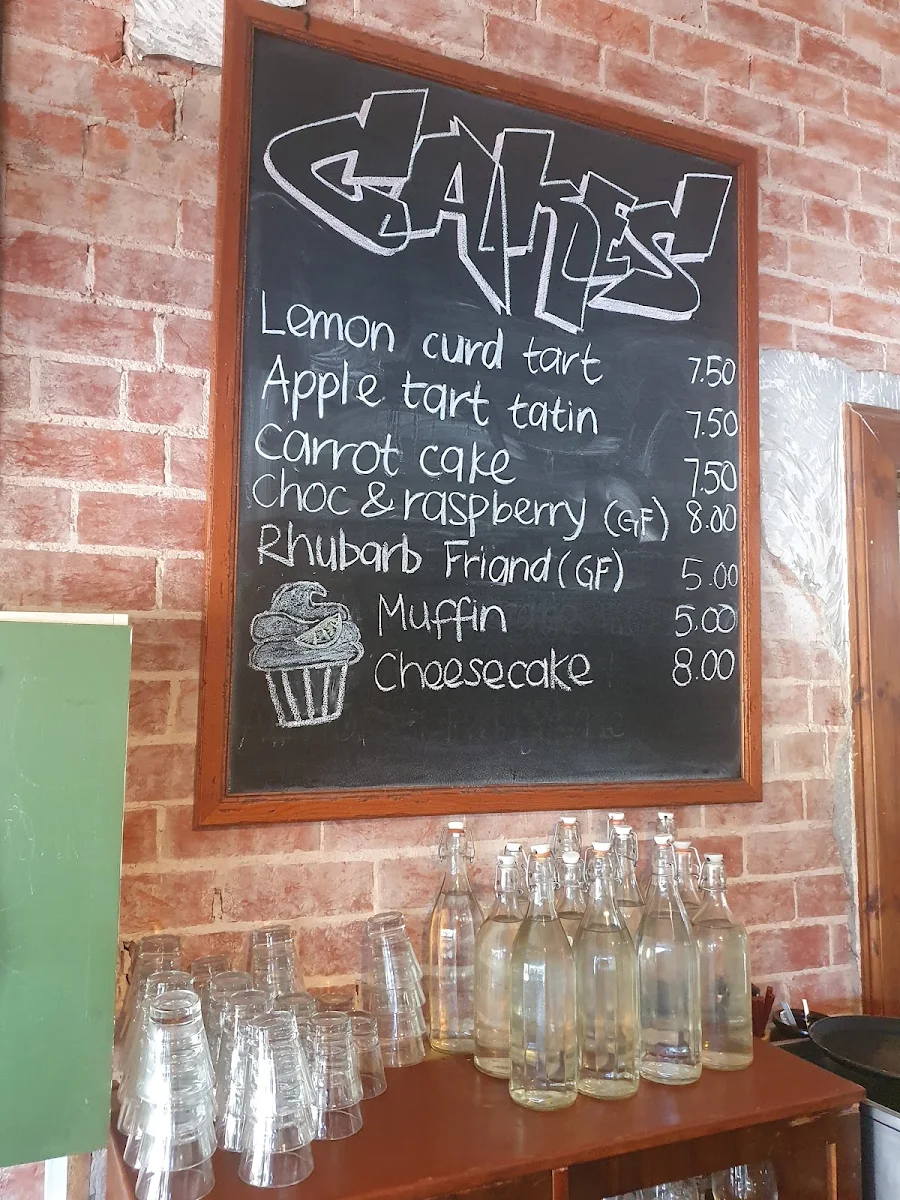 CAKES
Lemon curd tart 7.50
Apple tart tatin 7.50
Carrot cake 7.50
Choc & raspberry (GF) 8.00
Rhubarb Friand (GF) 5.00
Muffin 5.00
Cheesecake 8.00